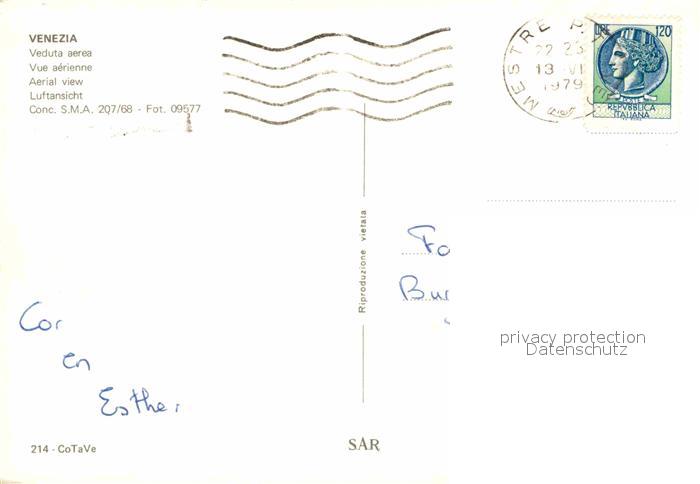 VENEZIA
Veduta aerea
Vue aérienne
Aerial view
Luftansicht
Conc. S.M.A. 207/68 - Fot. 09577
MESTRE
22 23
13 VI
1979
LIRE 120
POSTE
REPVBBLICA
ITALIANA
Riproduzione vietata
Fo
Bur
privacy protection
Datenschutz
Cor
en
Esther
214 - CoTaVe
SAR